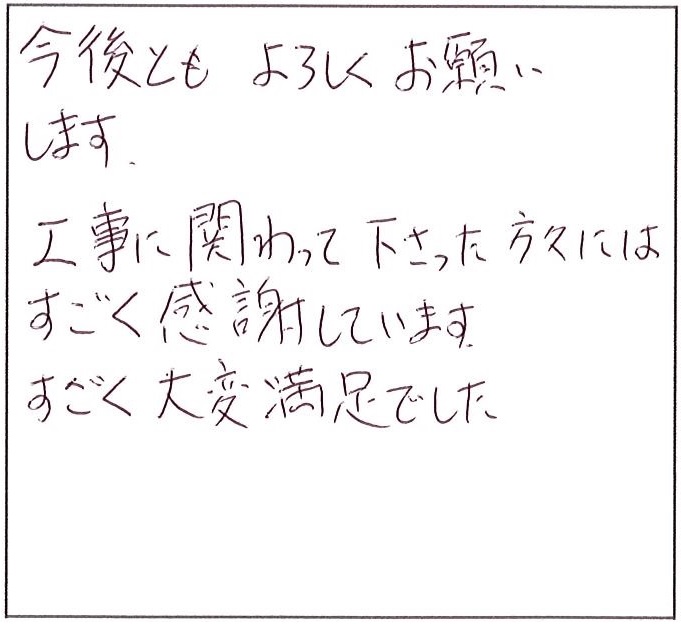 今後とも よろしくお願い
します.
工事に関わって下さった方々には
すごく感謝しています.
すごく大変満足でした